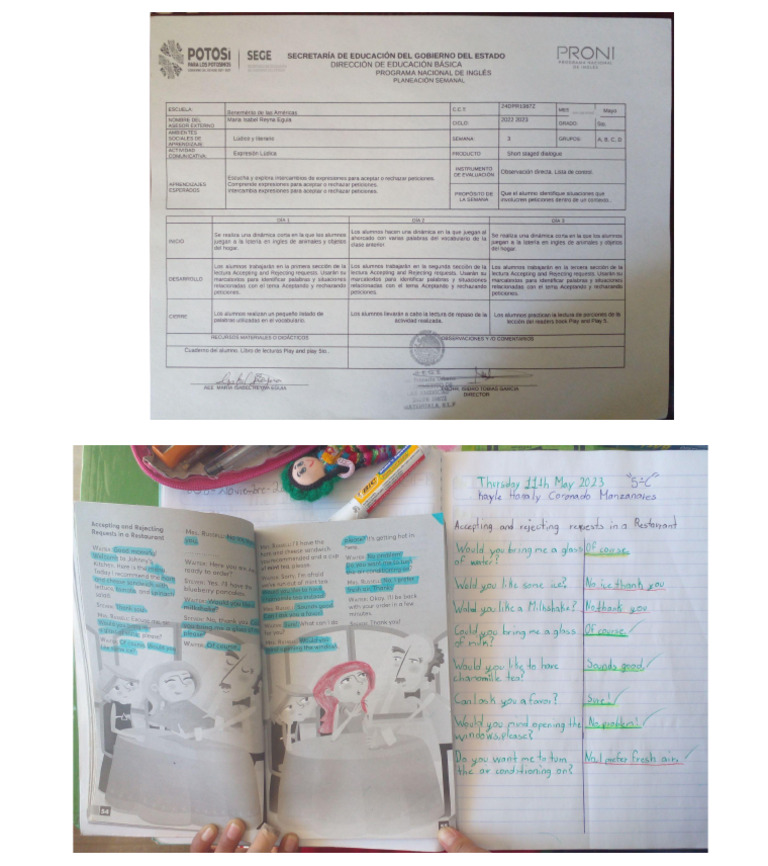 POTOSÍ
PARA LOS POTOSINOS
SEGE
SECRETARÍA DE EDUCACIÓN DEL GOBIERNO DEL ESTADO
DIRECCIÓN DE EDUCACIÓN BÁSICA
PROGRAMA NACIONAL DE INGLÉS
PLANEACIÓN SEMANAL
PRONI
PROGRAMA NACIONAL
DE INGLÉS
ESCUELA:
Benemérito de las Américas
C.C.T.
MES
Mayo
NOMBRE DEL
ASESOR EXTERNO
María Isabel Reyna Eguía
CICLO:
2022 2023
GRADO:
5to.
AMBIENTES
SOCIALES DE
APRENDIZAJE
Lúdico y literario
SEMANA:
3
GRUPOS:
A, B, C, D
ACTIVIDAD
COMUNICATIVA:
Expresión Lúdica
PRODUCTO
Short staged dialogue
APRENDIZAJES
ESPERADOS
Escucha y explora intercambios de expresiones para aceptar o rechazar peticiones.
Comprende expresiones para aceptar o rechazar peticiones.
Intercambia expresiones para aceptar o rechazar peticiones.
INSTRUMENTO
DE EVALUACIÓN
Observación directa. Lista de control.
PROPÓSITO DE
LA SEMANA
Que el alumno identifique situaciones que
involucren peticiones dentro de un contexto.
DÍA 1
DÍA 2
DÍA 3
INICIO
Se realiza una dinámica corta en la que los alumnos
juegan a la lotería en ingles de animales y objetos
del hogar.
Los alumnos hacen una dinámica en la que juegan al
ahorcado con varias palabras del vocabulario de la
clase anterior.
Se realiza una dinámica corta en la que los alumnos
juegan a la lotería en ingles de animales y objetos
del hogar.
DESARROLLO
Los alumnos trabajarán en la primera sección de la
lectura Accepting and Rejecting requests. Usarán su
marcatextos para identificar palabras y situaciones
relacionadas con el tema Aceptando y rechazando
peticiones.
Los alumnos trabajarán en la segunda sección de la
lectura Accepting and Rejecting requests. Usarán su
marcatextos para identificar palabras y situaciones
relacionadas con el tema Aceptando y rechazando
peticiones.
Los alumnos trabajarán en la tercera sección de la
lectura Accepting and Rejecting requests. Usarán su
marcatextos para identificar palabras y situaciones
relacionadas con el tema Aceptando y rechazando
peticiones.
CIERRE
Los alumnos realizan un pequeño listado de
palabras utilizadas en el vocabulario.
Los alumnos llevarán a cabo la lectura de repaso de la
actividad realizada.
Los alumnos practican la lectura de porciones de la
lección del readers book Play and Play 5.
RECURSOS MATERIALES O DIDÁCTICOS
OBSERVACIONES Y /O COMENTARIOS
Cuaderno del alumno. Libro de lecturas Play and play 5to.
AEE. MARÍA ISABEL REYNA EGUÍA
DIRECTOR
Accepting and Rejecting
Requests in a Restaurant
Waiter: Good morning
welcome to Johnny's
Kitchen. Here is the menu.
Today I recommend the ham
and cheese sandwich with
Waiter: Here you are.
ready to order?
Steven: Yes. I'll have the
blueberry pancakes.
milkshake?
Steven: No, thank you.
Waiter: Of course.
54
Mrs. Ronald: I'll have the
ham and cheese sandwich
you recommended and a cup
of mint tea, please.
Waiter: Sorry, I'm afraid
we've run out of mint tea.
Would you like to have
chamomile tea instead?
Sounds good.
Can I ask you a favor?
Waiter: Sure! what can I do
for you?
please? It's getting hot in
here.
Waiter: No problem!
Waiter: Okay. I'll be back
with your order in a few
minutes.
Steven: Thank you!
BIC
Thursday 11th May 2023 "5-C"
Kayle Honaly Coronado Manzanares
Accepting and rejecting requests in a Restaurant
Would you bring me a glass Of course
of water?
Wold you like some ice? No ice thank you
Wold you like a Milkshake? No thank you
Could you bring me a glass Of course
of milk?
Would you like to have Sounds good
chamomile tea?
Can I ask you a favor? Sure!
Would you mind opening the No problem!
windows, please?
Do you want me to turn No, I prefer fresh air.
the air conditioning on?